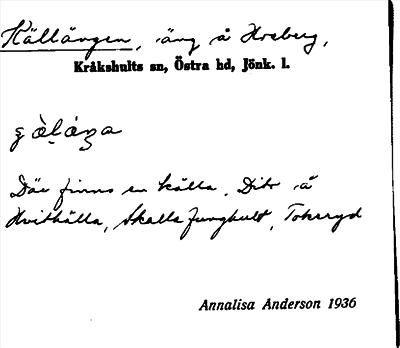 Källängen, äng å Hreberg,
Kråkshults sn, Östra hd, Jönk. l.
Där finns en källa. Dito å
Hvithälla, Skalla Ljunghult, Tokeryd
Annalisa Anderson 1936